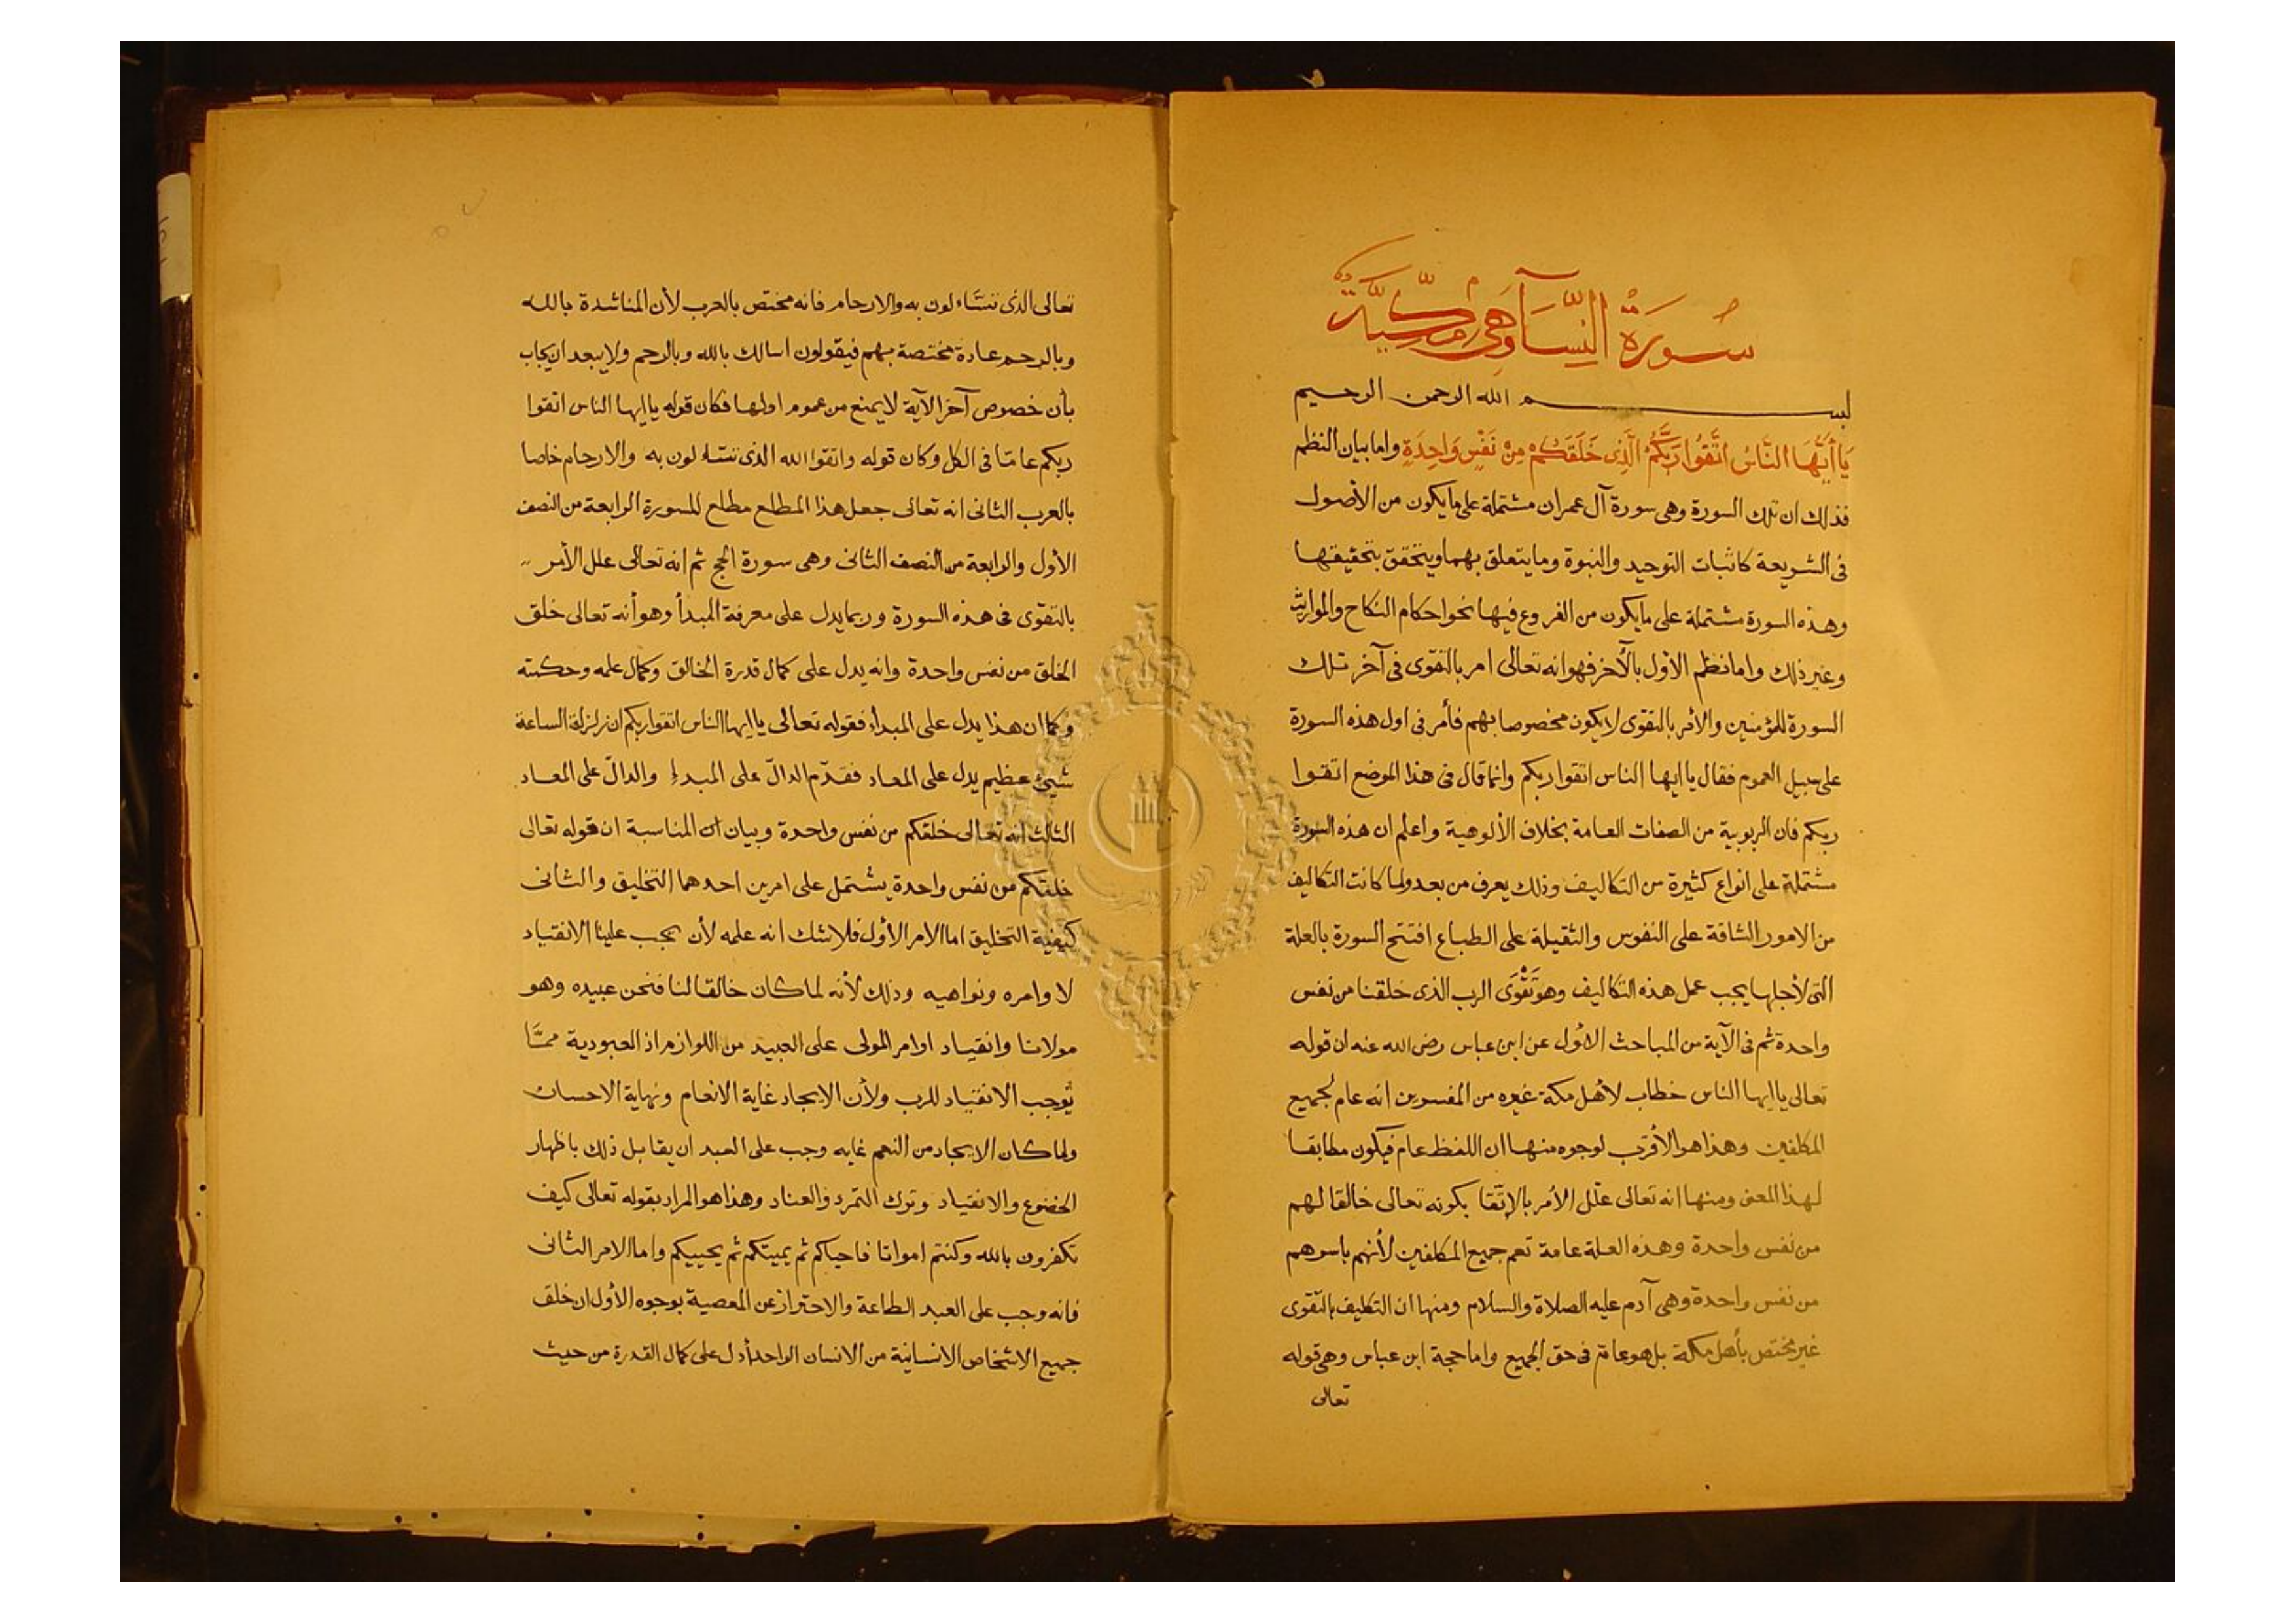 سُورَةُ النِّسَآءِ وَهِيَ مَكِّيَّةٌ
بسم الله الرحمن الرحيم
يَا أَيُّهَا النَّاسُ اتَّقُوا رَبَّكُمُ الَّذِى خَلَقَكُمْ مِنْ نَفْسٍ وَاحِدَةٍ واما بيان النظم
فذلك ان تلك السورة وهى سورة آل عمران مشتملة على ما يكون من الأصول
فى الشريعة كاثبات التوحيد والنبوة وما يتعلق بهما ويتحقق بتحقيقها
وهذه السورة مشتملة على ما يكون من الفروع فيها نحو احكام النكاح والمواريث
وغير ذلك واما نظم الأول بالآخر فهو انه تعالى امر بالتقوى فى آخر تلك
السورة للمؤمنين والأمر بالتقوى لا يكون مخصوصا بهم فأمر فى اول هذه السورة
على سبيل العموم فقال يا ايها الناس اتقوا ربكم وانما قال فى هذا الموضع اتقوا
ربكم فان الربوبية من الصفات العامة بخلاف الألوهية واعلم ان هذه السورة
مشتملة على انواع كثيرة من التكاليف وذلك يعرف من بعد ولما كانت التكاليف
من الامور الشاقة على النفوس والثقيلة على الطباع افتتح السورة بالعلة
التى لأجلها يجب عمل هذه التكاليف وهو تَقْوَى الرب الذى خلقنا من نفس
واحدة ثم فى الآية من المباحث الأول عن ابن عباس رضى الله عنه ان قوله
تعالى يا ايها الناس خطاب لأهل مكة غيره من المفسرين انه عام لجميع
المكلفين وهذا هو الأقرب لوجوه منها ان اللفظ عام فيكون مطابقا
لهذا المعنى ومنها انه تعالى علّل الأمر بالإتّقا بكونه تعالى خالقا لهم
من نفس واحدة وهذه العلة عامة تعم جميع المكلفين لأنهم باسرهم
من نفس واحدة وهى آدم عليه الصلاة والسلام ومنها ان التكليف بالتقوى
غير مختص بأهل مكة بل هو عام فى حق الجميع واما حجة ابن عباس وهى قوله
تعالى
تعالى الذى تسّاءلون به والارحام فانه مختص بالعرب لأن المناشدة بالله
وبالرحم عادة مختصة بهم فيقولون اسالك بالله وبالرحم ولا يبعد ان يجاب
بأن خصوص آخر الآية لا يمنع من عموم اولها فكان قوله يا ايها الناس اتقوا
ربكم عامّا فى الكل وكان قوله واتقوا الله الذى تسّاءلون به والارحام خاصا
بالعرب الثانى انه تعالى جعل هذا المطلع مطلع للسورة الرابعة من النصف
الأول والرابعة من النصف الثانى وهى سورة الحج ثم انه تعالى علل الأمر
بالتقوى فى هذه السورة وربما يدل على معرفة المبدأ وهو أنه تعالى خلق
الخلق من نفس واحدة وانه يدل على كمال قدرة الخالق وكمال علمه وحكمته
وكما ان هذا يدل على المبدأ فقوله تعالى يا ايها الناس اتقوا ربكم ان زلزلة الساعة
شيئ عظيم يدل على المعاد فقدّم الدالّ على المبدإ والدالّ على المعاد
الثالث انه تعالى خلقكم من نفس واحدة وبيان ان المناسبة ان قوله تعالى
خلقكم من نفس واحدة يشتمل على امرين احدهما التخليق والثانى
كيفية التخليق اما الامر الأول فلا شك انه علمه لأن يجب علينا الانقياد
لاوامره ونواهيه وذلك لأنه لما كان خالقا لنا فنحن عبيده وهو
مولانا وانقياد اوامر المولى على العبيد من اللوازم اذ العبودية ممّا
تُوجب الانقياد للرب ولأن الايجاد غاية الانعام ونهاية الاحسان
ولما كان الايجاد من النعم غايه وجب على العبد ان يقابل ذلك باظهار
الخضوع والانقياد وترك التمرد والعناد وهذا هو المراد بقوله تعالى كيف
تكفرون بالله وكنتم امواتا فاحياكم ثم يميتكم ثم يحييكم واما الامر الثانى
فانه وجب على العبد الطاعة والاحتراز عن المعصية بوجوه الأول ان خلق
جميع الاشخاص الانسانية من الانسان الواحد أدل على كمال القدرة من حيث